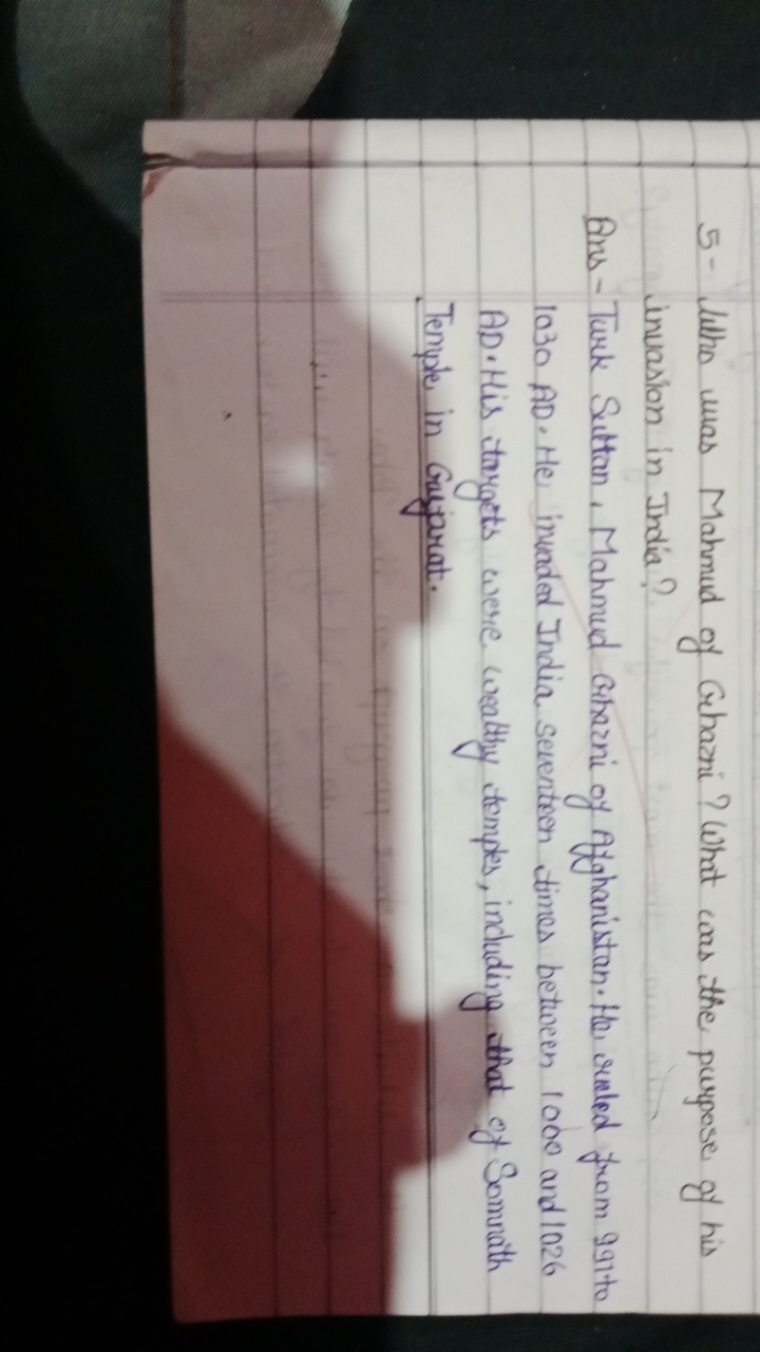 5- Who was Mahmud of Ghazni? What was the purpose of his
invasion in India?
Ans- Turk Sultan, Mahmud Ghazni of Afghanistan. He ruled from 991 to
1030 AD. He invaded India seventeen times between 1000 and 1026
AD. His targets were wealthy temples, including that of Somnath
Temple in Gujarat.